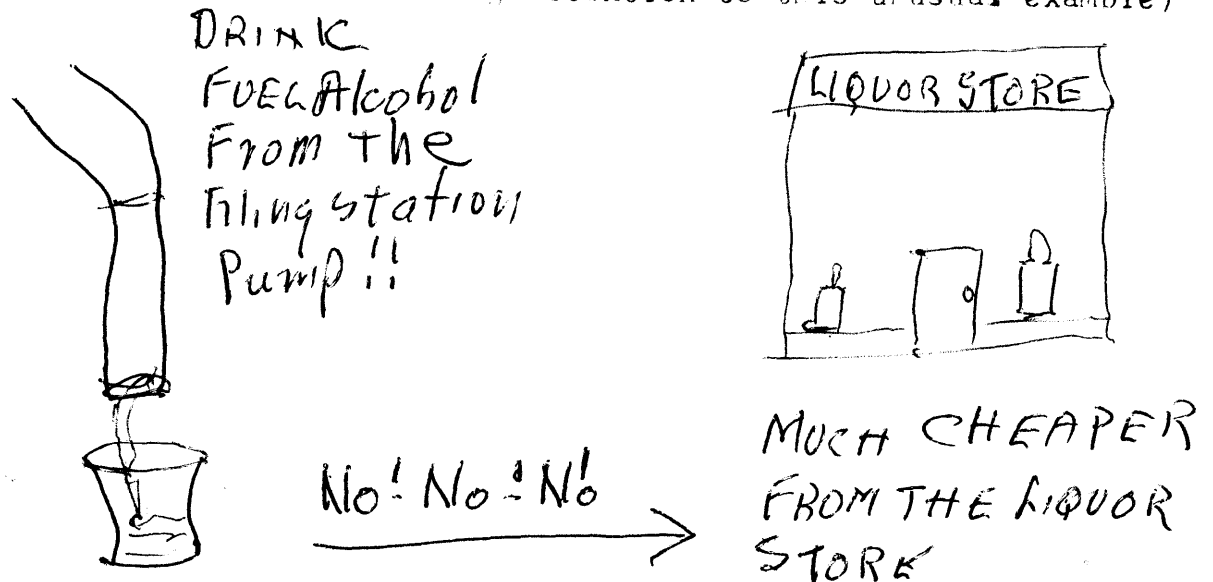 to this unusual example)
DRINK
FUEL Alcohol
From the
Filing station
Pump!!
LIQUOR STORE
No! No! No!
MUCH CHEAPER
FROM THE LIQUOR
STORE